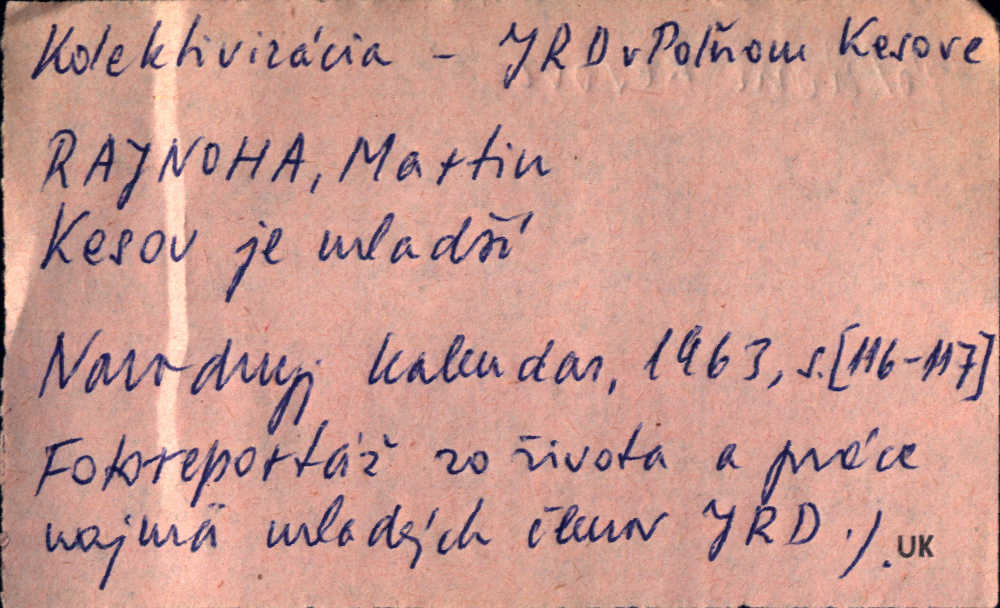 Kolektivizácia - JRD v Poľnom Kesove
RAJNOHA, Martin
Kesov je mladší
Národný kalendár, 1963, s.[116-117]
Fotoreportáž zo života a práce
najmä mladých členov JRD.).
UK